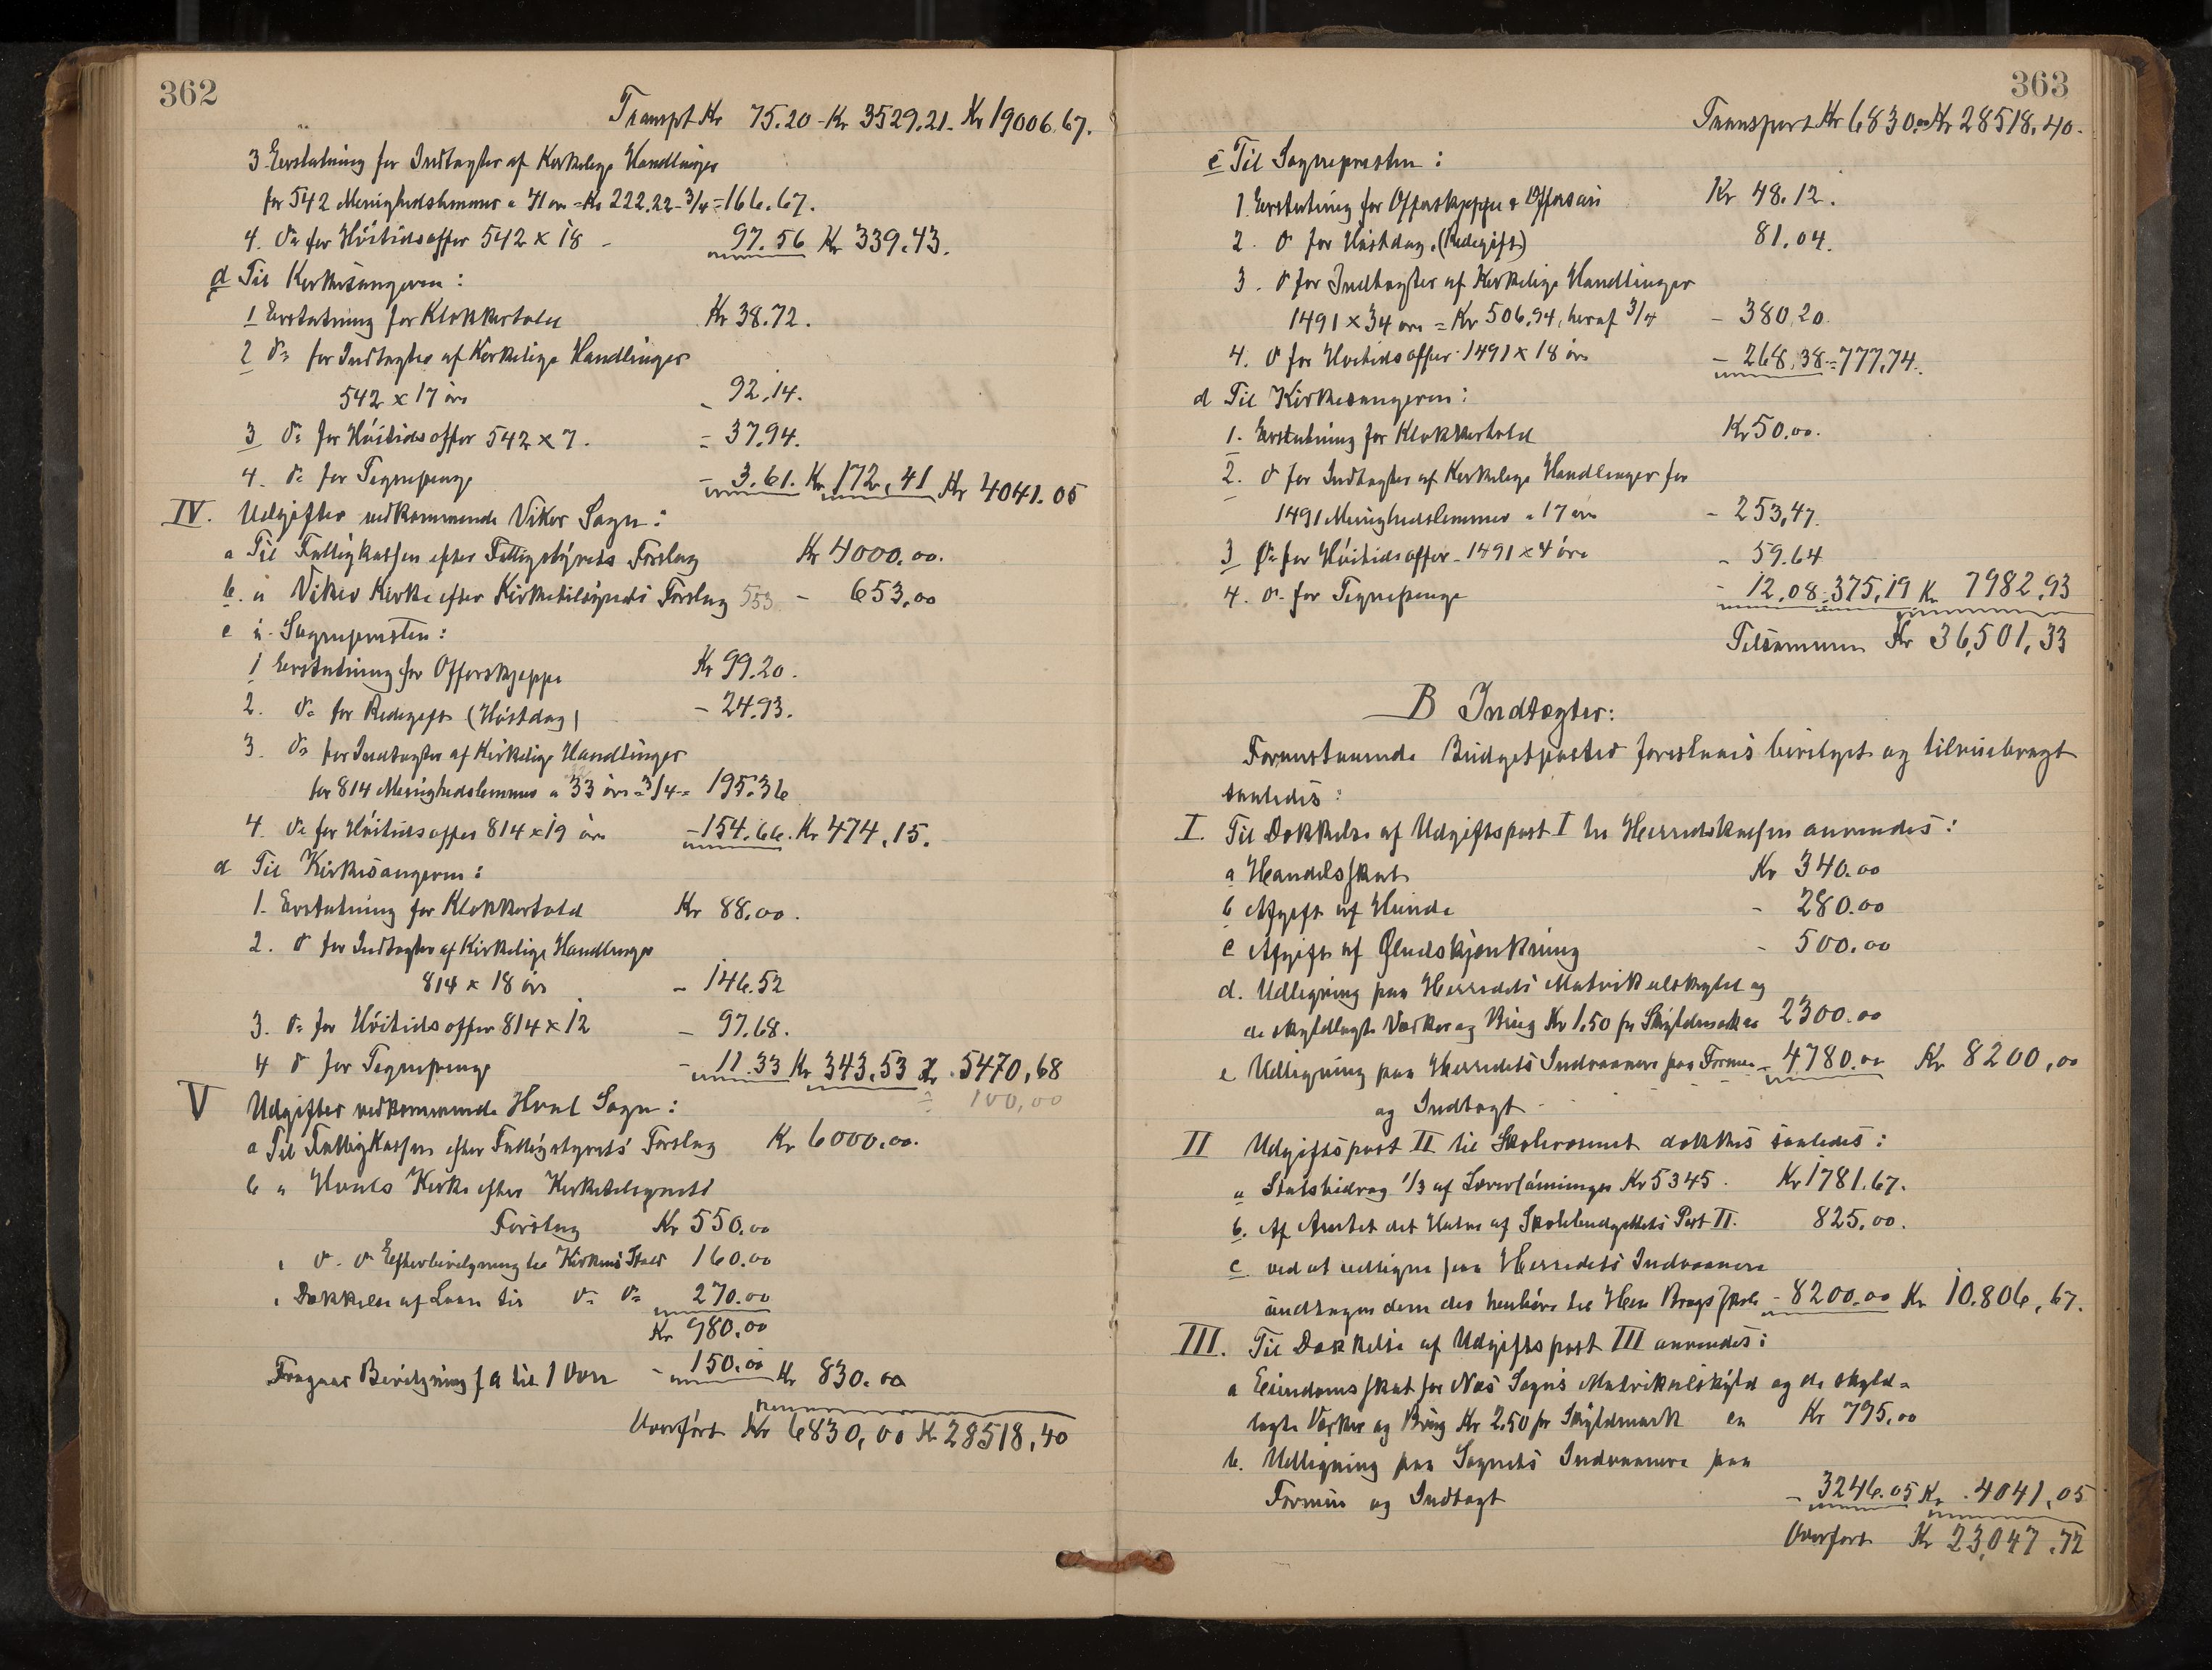 362
Transpt Kr 75.20 - Kr 3529.21. Kr 19006.67.
3 Erstatning for Indtægter af Kirkelige Handlinger
for 542 Menighedslemmer a 41 øre = Kr 222.22 - 3/4 = 166.67.
4. do for Höitidsoffer 542 x 18 - 97.56 Kr 339.43.
d Til Kirkesangeren:
1 Erstatning for Klokkertold Kr 38.72.
2 do for Indtægter af Kirkelige Handlinger
542 x 17 öre - 92.14.
3 do for Höitidsoffer 542 x 7. = 37.94.
4. do for Tegnepenge - 3.61. Kr 172.41 Kr 4041.05
IV. Udgifter vedkommende Viker Sogn:
a Til Fattigkassen efter Fattigstyrets Forslag Kr 4000.00.
b. " Viker Kirke efter Kirketilsynets Forslag 553 - 653,00
c " Sognepresten:
1 Erstatning for Offerskjeppe Kr 99.20.
2. do for Redegift (Höstdag) - 24.93.
3. do for Indtægter af Kirkelige Handlinger
for 814 Menighedslemmer a 33 öre = 3/4 = 195.36
4. do for Höitidsoffer 814 x 19 öre - 154.66. Kr 474,15.
d Til Kirkesangeren:
1. Erstatning for Klokkertold Kr 88,00.
2. do for Indtægter af Kirkelige Handlinger
814 x 18 öre - 146.52
3. do for Höitidsoffer 814 x 12 - 97.68.
4 do for Tegnepenge - 11.33 Kr 343,53 Kr. 5470,68
÷ 100,00
V Udgifter vedkommende Hval Sogn:
a Til Fattigkassen efter Fattigstyrets Forslag Kr 6000.00.
b " Hvals Kirke efter Kirketilsynets
Forslag Kr 550.00
" do do Efterbevilgning til Kirkens Stald 160.00
" Dækkelse af Laan til do do 270.00
Kr 980,00
Fragaar Bevilgning fra til 1 Ovn - 150.00 Kr 830.00
Overført Kr 6830,00 Kr 28518,40
363
Transport Kr 6830.00 Kr 28518.40.
c Til Sognepresten:
1. Erstatning for Offerskjeppe & Offersau Kr 48.12.
2. do for Höstdag. (Redegift) 81.04.
3. do for Indtægter af Kirkelige Handlinger
1491 x 34 öre = Kr 506.94, heraf 3/4 - 380,20.
4. do for Höitidsoffer 1491 x 18 öre - 268,38 = 777,74.
d Til Kirkesangeren:
1. Erstatning for Klokkertold Kr 50.00.
2. do for Indtægter af Kirkelige Handlinger for
1491 Menighedslemmer a 17 öre - 253,47.
3 do for Höitidsoffer - 1491 x 4 öre - 59.64
4. do for Tegnepenge - 12.08 = 375,19 Kr 7982,93
Tilsammen Kr 36,501,33
B Indtægter:
Foranstaaende Budgetposter foreslaaes bevilget og tilveiebragt
saaledes:
I. Til Dækkelse af Udgiftspost I til Herredskassen anvendes:
a Handelsskat Kr 340.00
b Afgift af Hunde - 280.00
c Afgift af Øludskjænkning - 500.00
d. Udligning paa Herredets Matrikulskyld og
de skyldlagte Værker og Brug Kr 1.50 pr Skyldmark ca 2300.00
e Udligning paa Herredets Indvaanere paa Formue - 4780.00 Kr 8200,00
og Indtægt
II Udgiftspost II til Skolevæsenet dækkes saaledes:
a Statsbidrag 1/3 af Lærerlönninger Kr 5345. Kr 1781.67.
b. Af Amtet det Halve af Skolebudgettets Post II. 825,00.
c ved at udligne paa Herredets Indvaanere
undtagen dem der henhöre til Hens Brugs Skole - 8200.00 Kr 10.806,67.
III. Til Dækkelse af Udgiftspost III anvendes:
a Eiendomsskat for Næs Sogns Matrikulskyld og de skyld-
lagte Værker og Brug Kr 2.50 pr Skyldmark ca Kr 795,00
b. Udligning paa Sognets Indvaanere paa
Formue og Indtægt - 3246.05 Kr. 4041,05
Overført Kr 23,047.72